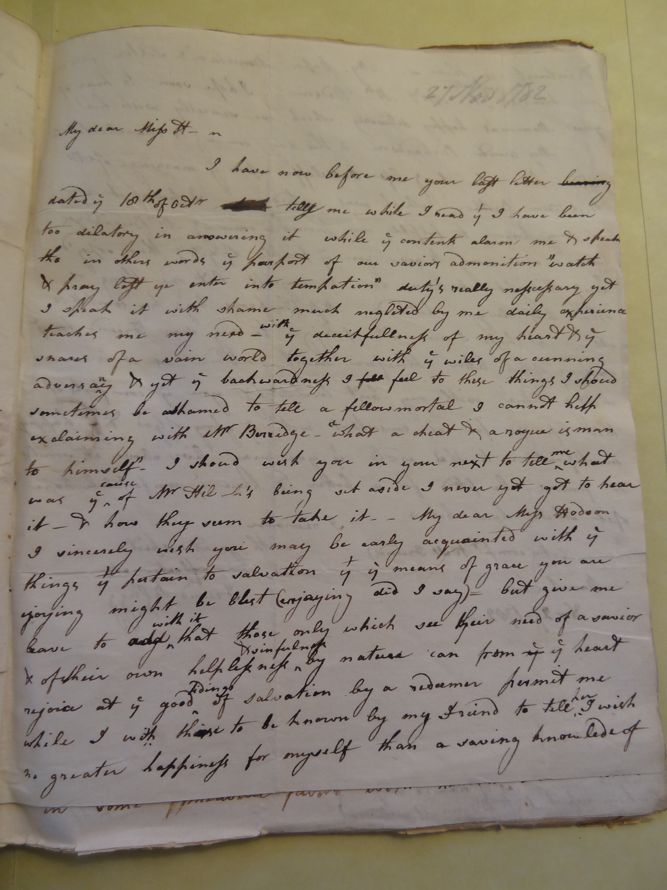 27 Nov 1782
My dear Miss H- n
I have now before me your last letter bearing
dated ye 18th of Octr tells me while I read yt I have been
too dilatory in answering it while ye contents alarm me & speak
tho in others words ye purport of our saviors admonition "watch
& pray lest ye enter into temptation" duty's really nessessary yet
I speak it with shame much neglited by me daily experience
teaches me my need - with ye deceitfullness of my heart & ye
snares of a vain world together with ye wiles of a cunning
adversary & yet ye backwardness I feel to these things I should
sometimes be ashamed to tell a fellow mortal I cannot help
exclaiming with Mr Berridge - "what a cheat & a rogue is man
to himself" - I should wish you in your next to tell me what
was ye cause of Mr Hil- 's being set aside I never yet got to hear
it - & how they seem to take it - - My dear Miss Hodson
I sincerely wish you may be early acquainted with ye
things yt pertain to salvation yt ye means of grace you are
ijoying might be blest (enjoying did I say) - but give me
leave to add with it that those only which see their need of a savior
& of their own helplessness & sinfulness by nature can from ye heart
rejoice at ye good tidings of salvation by a redeemer permit me
while I wish these to be known by my Friend to tell her I wish
no greater happiness for myself than a saving knowlede of
in some favor